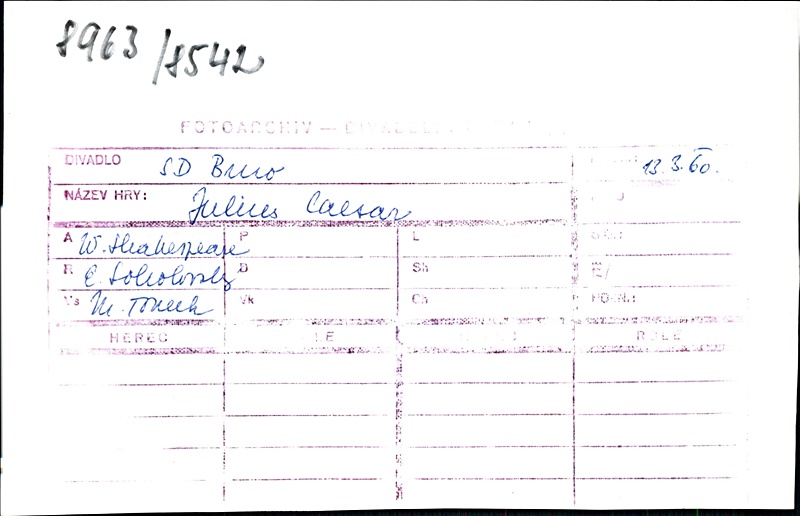 8963/8542
FOTOARCHIV —
DIVADLO SD Brno 13.3.60.
NÁZEV HRY: Julius Caesar
A W. Shakespeare P L
R E. Sokolovský D Sh
Vs M. Tomek Vk Ch
HEREC ROLE